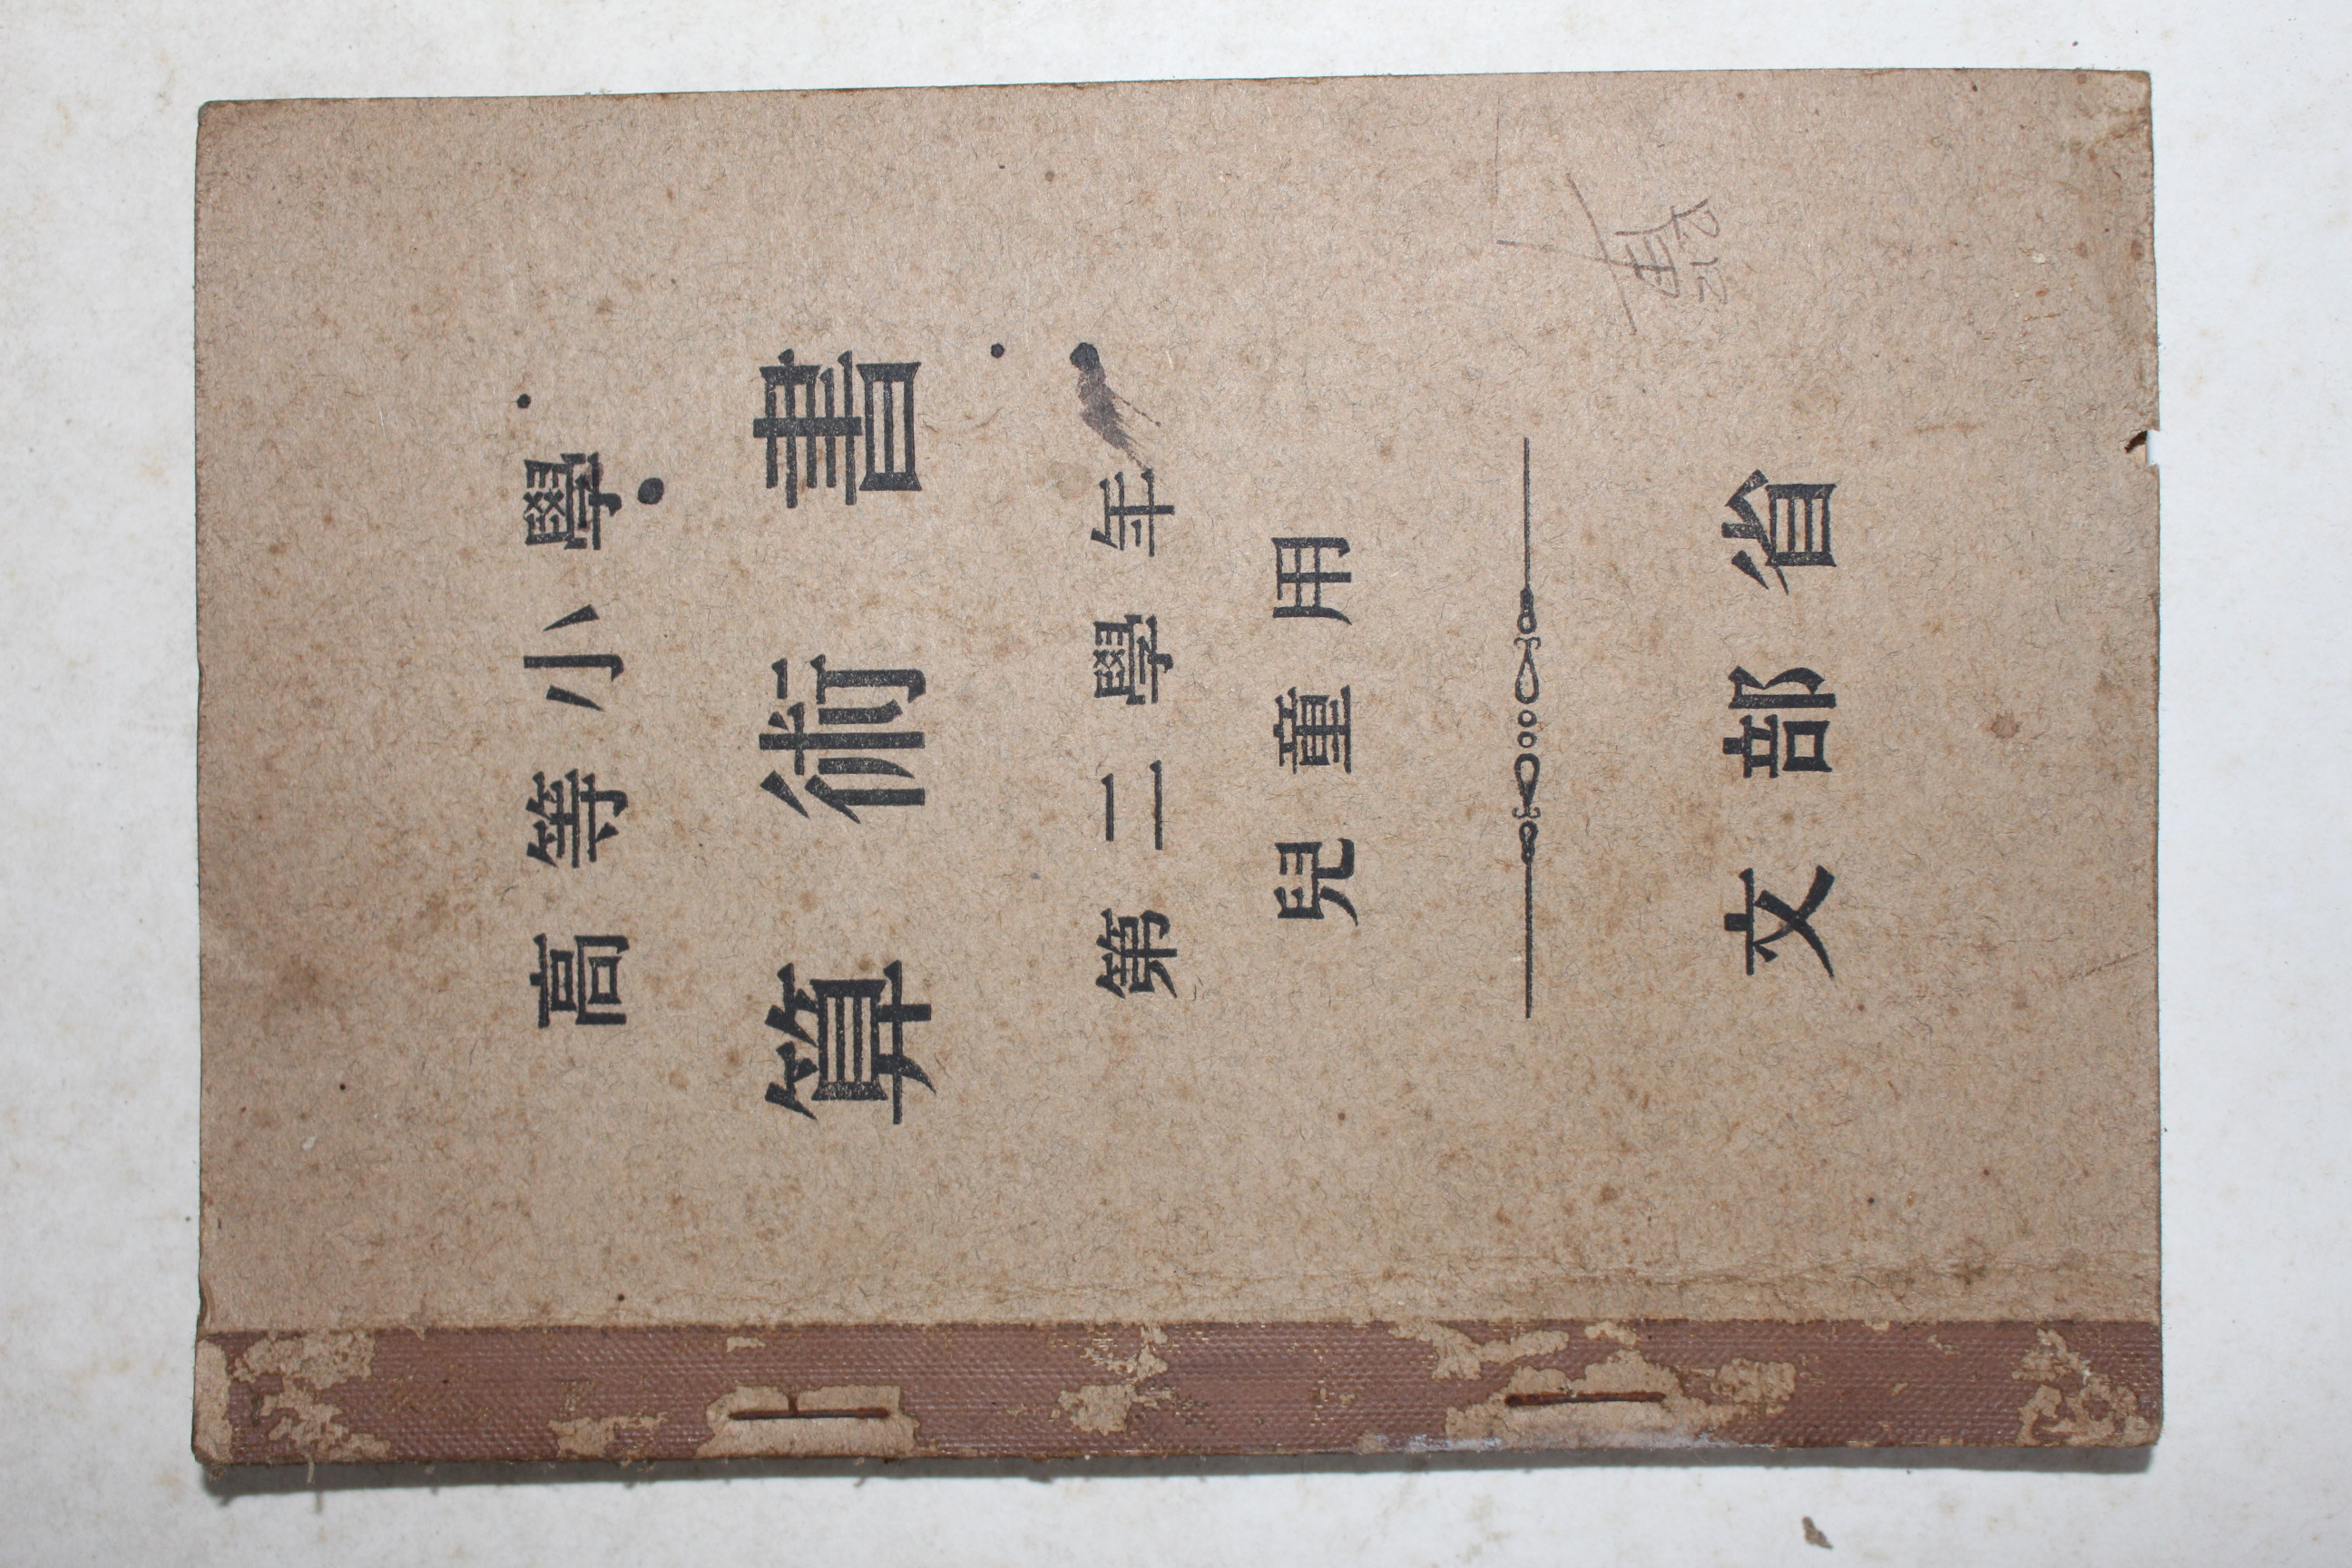 高等小學
算術書
第二學年
兒童用
文部省